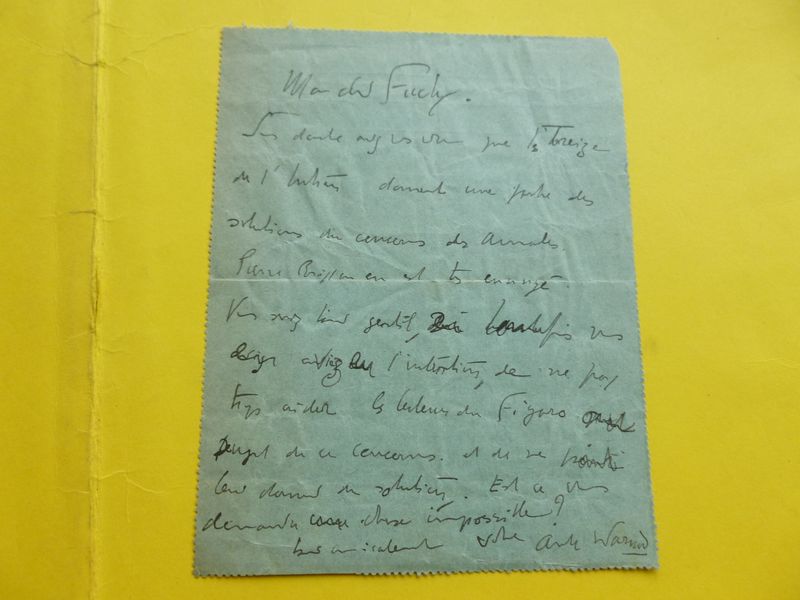 Mon cher
Sans doute que les Treize
de l'Intran donnent une partie des
solutions du concours des Annales.
Pierre Brisson en est très ennuyé.
Vous seriez bien gentil, toutefois vous
l'intention, de ne pas
trop aider les lecteurs du Figaro
sujet de ce concours. et de ne
leur donner de solutions. Est ce vous
demander chose impossible?
bien amicalement votre André Warnod